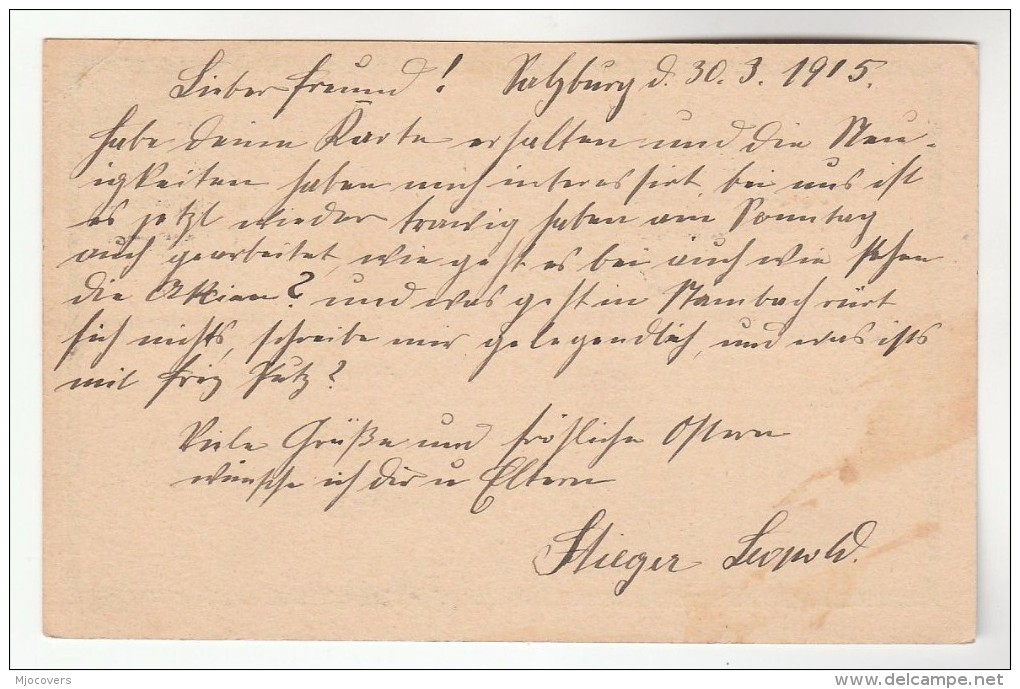 Lieber Freund! Salzburg d. 30.3.1915.
Habe deine Karte erhalten und die Neu-
igkeiten haben mich interessirt, bei uns ist
es jetzt wieder traurig haben am Sonntag
auch gearbeitet, wie geht es bei euch wie stehen
die Aktien? und was geht in Stambach rürt
sich nichts, schreibe mir gelegendlich, und was ists
mit Friz Putz?
Viele Grüße und fröhliche Ostern
wünsche ich dir u Eltern
Stieger Leopold.
Mjocovers
delcampe.net